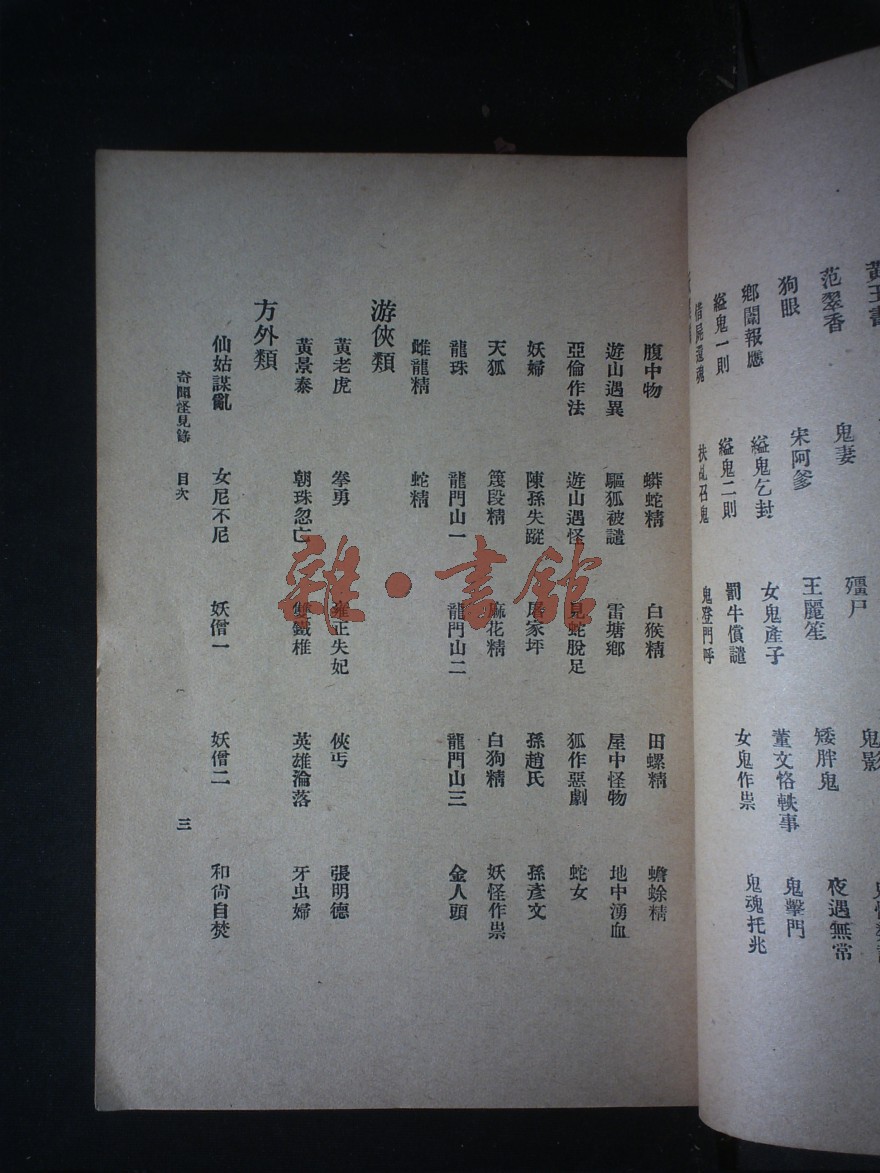 范翠香
狗眼 鬼妻
鄉闈報應 宋阿爹 殭尸 鬼影
縊鬼一則 縊鬼乞封 王麗笙 矮胖鬼 夜遇無常
借屍還魂 縊鬼二則 女鬼產子 董文恪軼事 鬼擊門
扶乩召鬼 罰牛償譴 女鬼作祟 鬼魂托兆
鬼登門呼
腹中物 蟒蛇精 白猴精 田螺精 蟾蜍精
遊山遇異 驅狐被譴 雷塘鄉 屋中怪物 地中湧血
亞倫作法 遊山遇怪 見蛇脫足 狐作惡劇 蛇女
妖婦 陳孫失蹤 居家坪 孫趙氏 孫彥文
天狐 篾段精 麻花精 白狗精 妖怪作祟
龍珠 龍門山一 龍門山二 龍門山三 金人頭
雌龍精 蛇精
游俠類
黃老虎 拳勇 雍正失妃 俠丐 張明德
黃景泰 朝珠忽亡 雙鐵椎 英雄淪落 牙虫婦
方外類
仙姑謀亂 女尼不尼 妖僧一 妖僧二 和尙自焚
奇聞怪見錄 目次 三
雜·書館